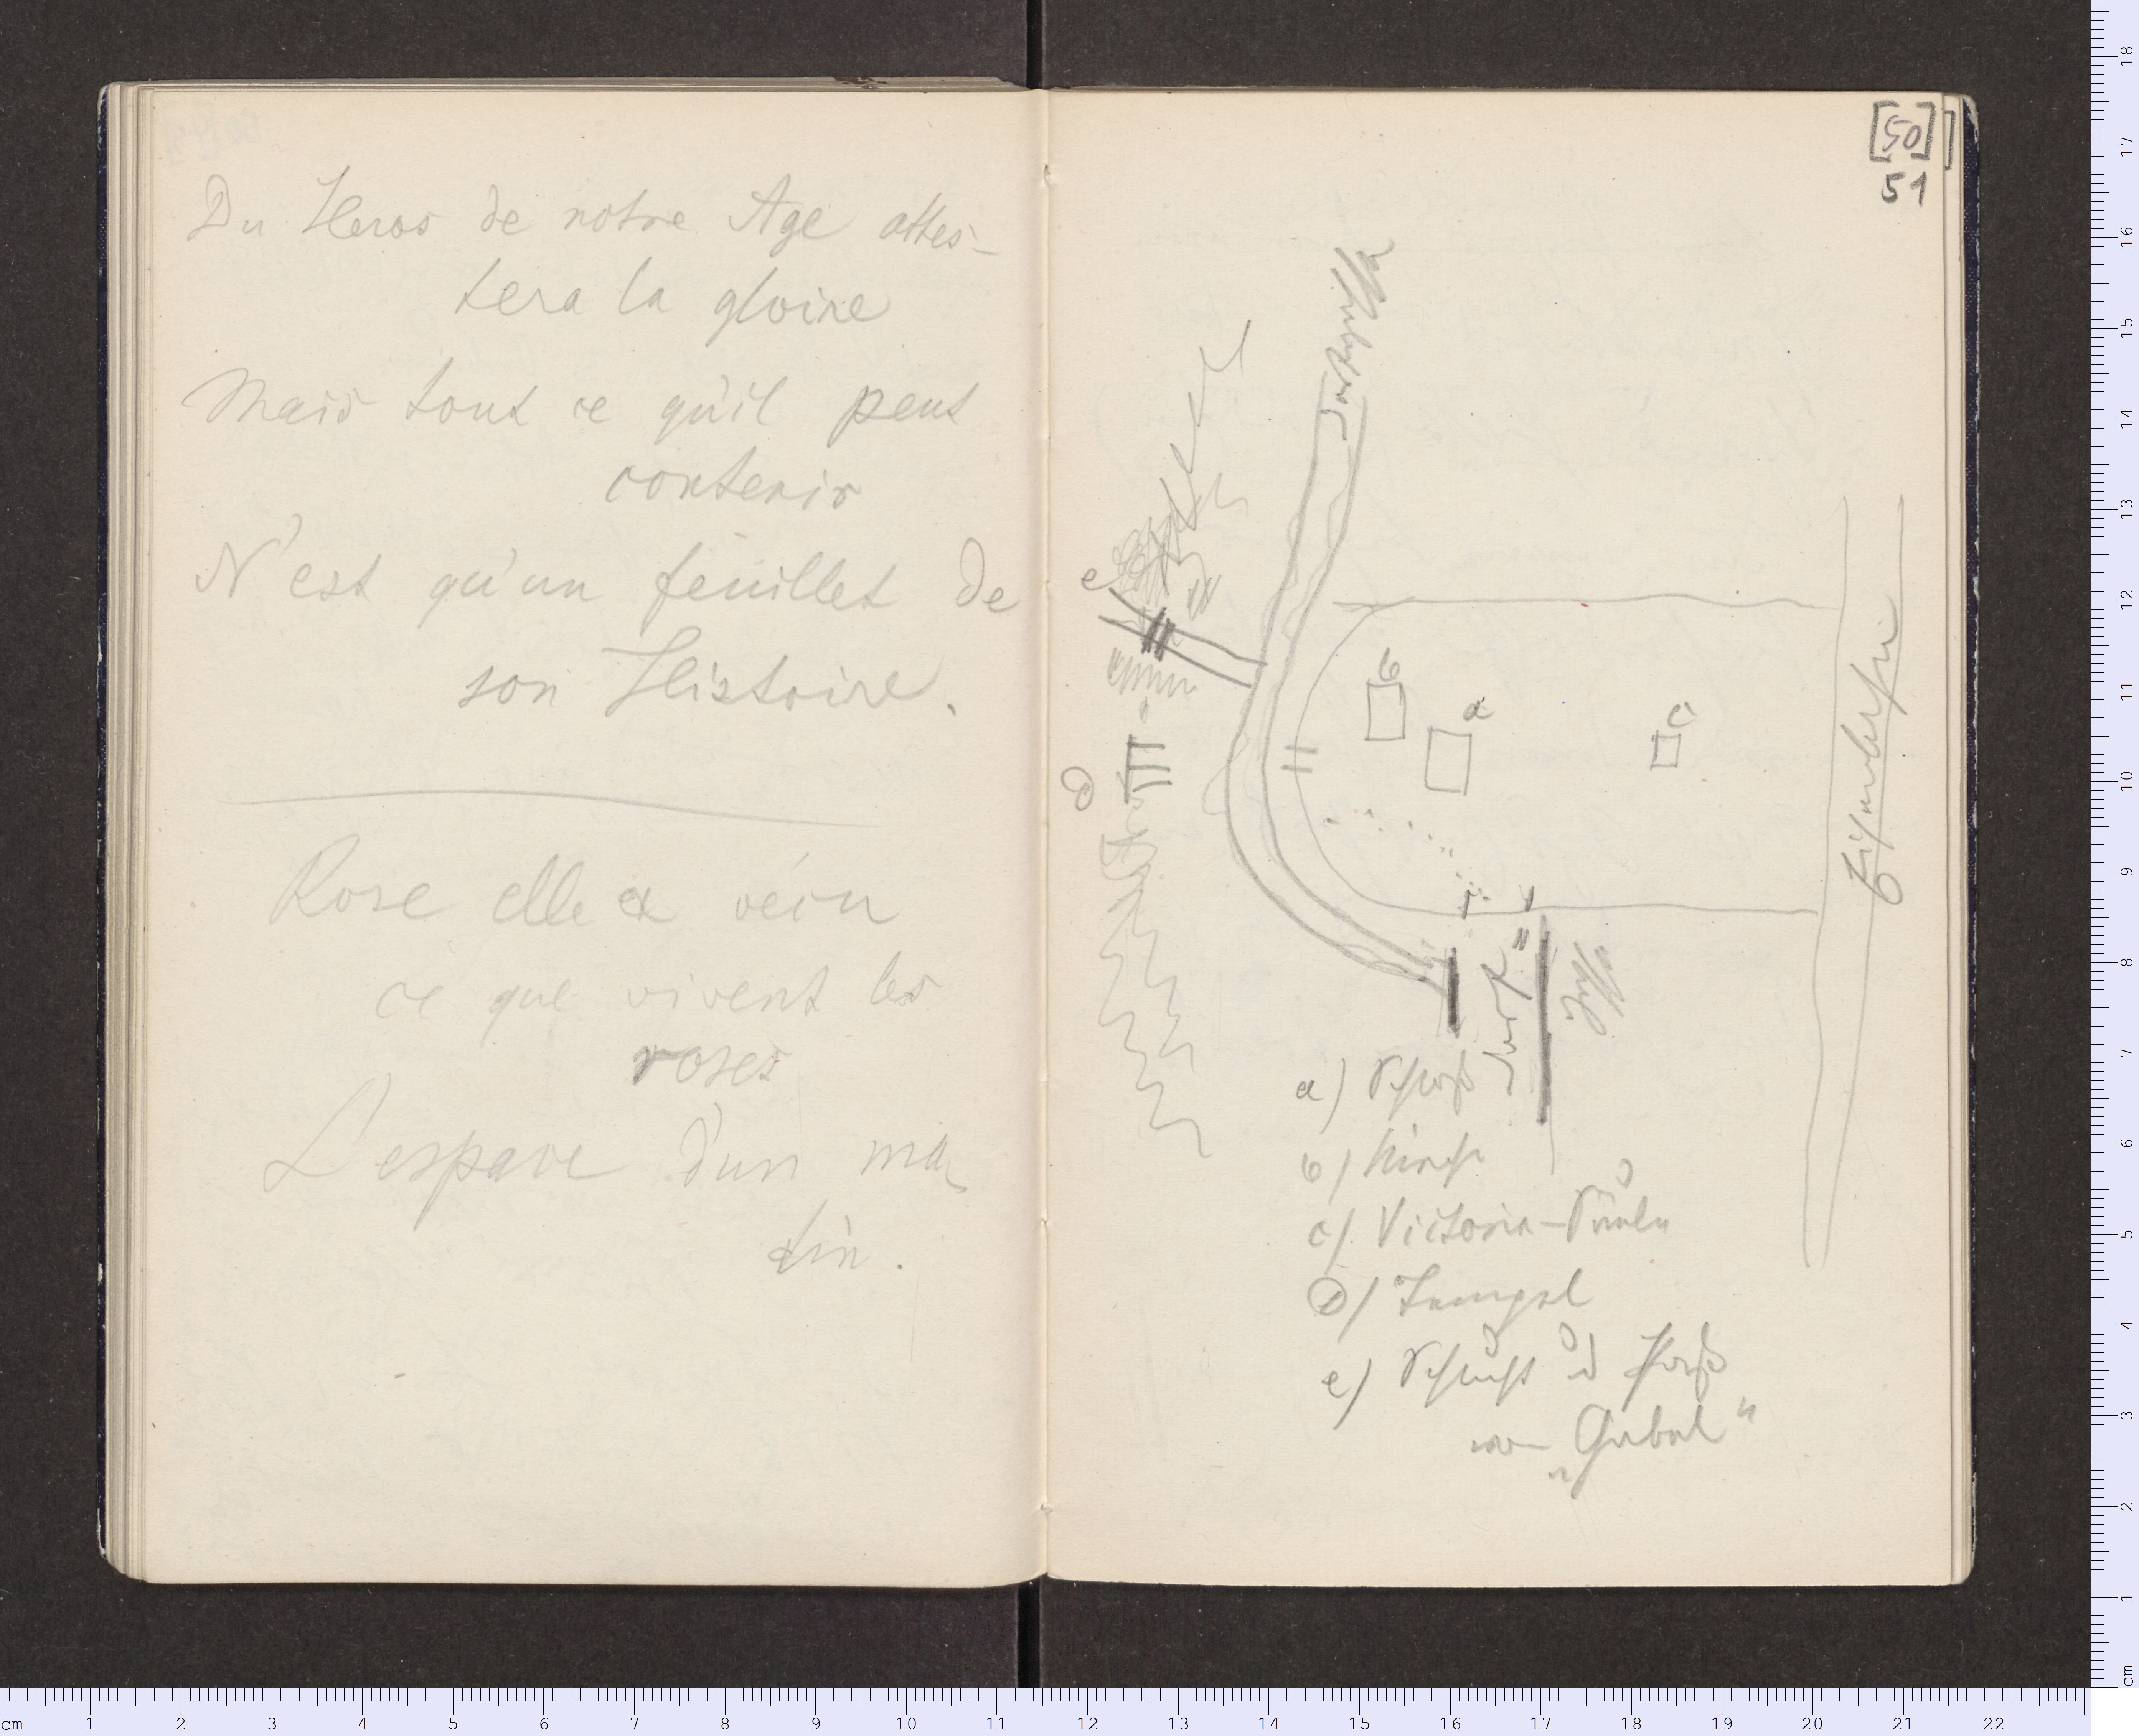 Du Heros de notre Age attes-
tera la gloire
Mais tout ce qu'il peut
contenir
N'est qu'un feuillet de
son Histoire.
Rose elle a vécu
ce que vivent les
roses
L'espace d'un ma-
tin.
[50]
51
e
b
a
c
d
Dorf=
a) Schloß
b) Kirche
c) Victoria-Säule
d) Tempel
e) Schlucht u Paß
von „Gabel“